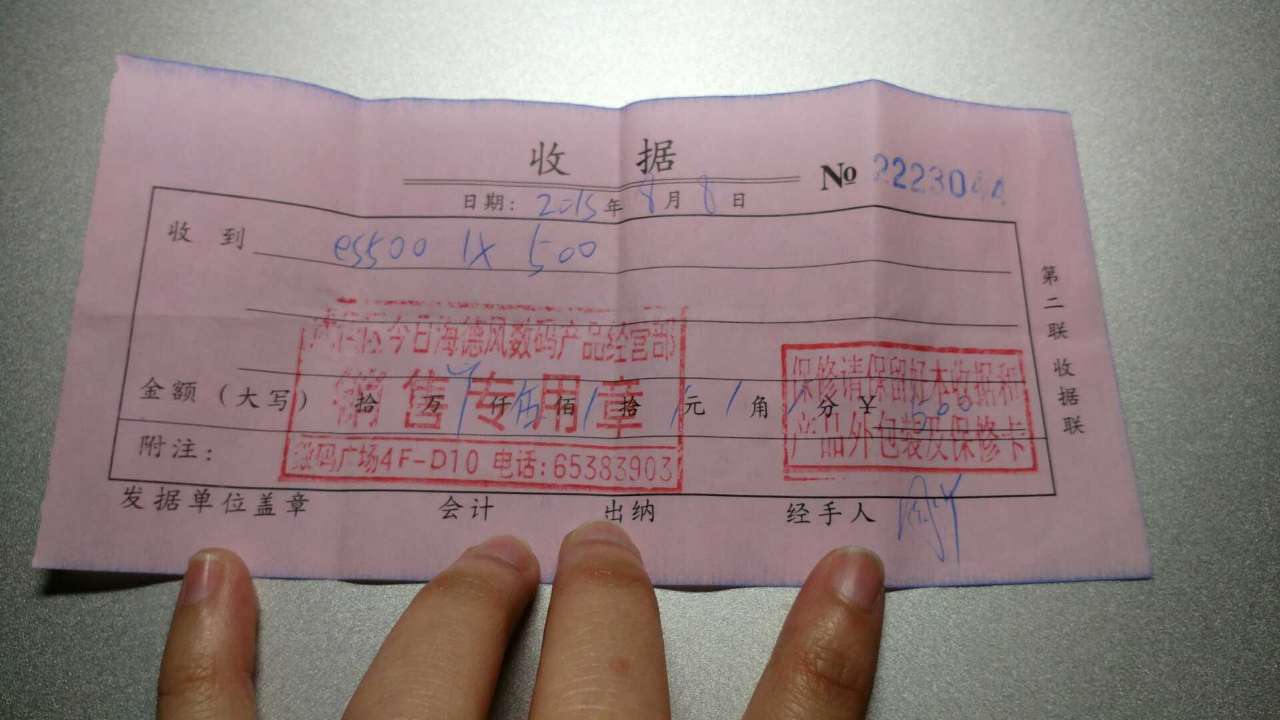 收 据
№ 22230
日期: 2015年8月8日
收 到 es500 1X 500
今日海德风数码产品经营部
销售专用章
数码广场4F-D10 电话:65383903
保修请保留好本收据和
产品外包装及保修卡
金额(大写) 拾 万 仟伍佰 拾 元 角 分 ¥ 500
附注:
发据单位盖章 会计 出纳 经手人
第二联 收据联